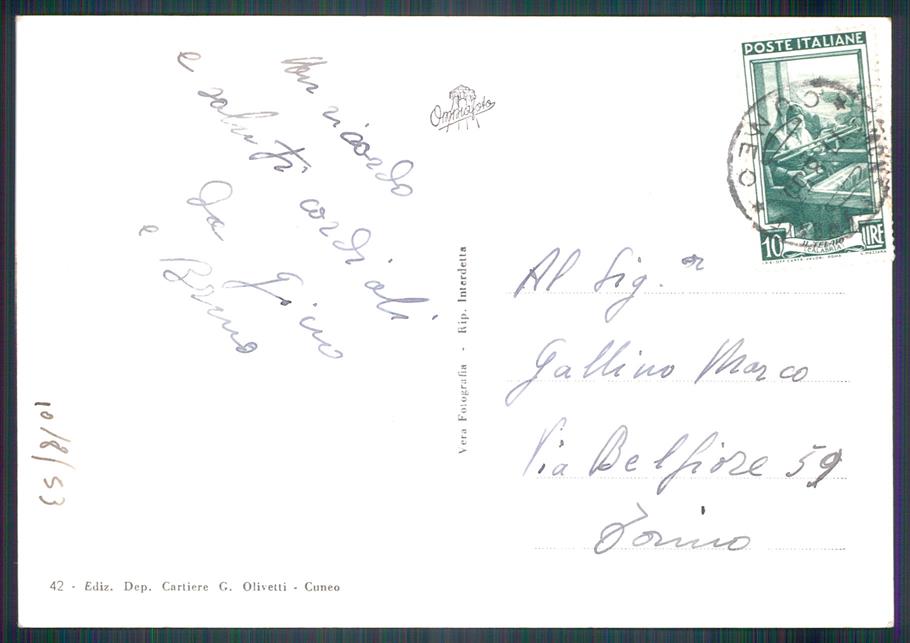 Un ricordo
e saluti cordiali
da Gino
e Bruno
10/8/53
42 - Ediz. Dep. Cartiere G. Olivetti - Cuneo
Vera Fotografia - Rip. Interdetta
POSTE ITALIANE
10 LIRE
IL TELAIO
(CALABRIA)
Al Sig.or
Gallino Marco
Via Belfiore 59
Torino